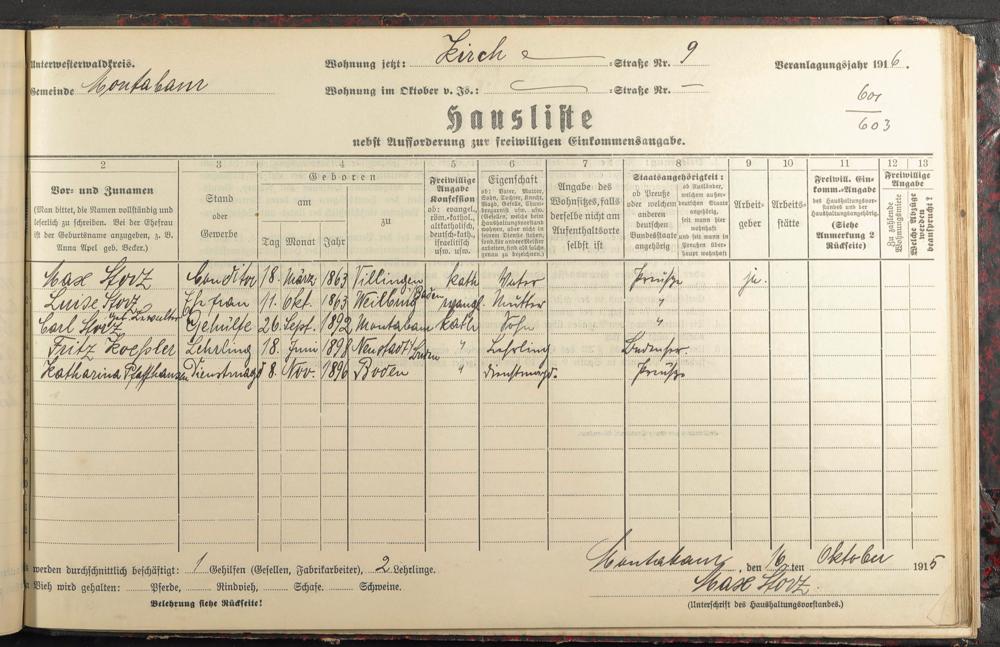 Unterwesterwaldkreis.
Wohnung jetzt: Kirch Straße Nr. 9
Veranlagungsjahr 1916.
Gemeinde Montabaur
Wohnung im Oktober v. Js.: Straße Nr. —
601
603
Hausliste
nebst Aufforderung zur freiwilligen Einkommensangabe.
2 3 4 5 6 7 8 9 10 11 12 13
Vor- und Zunamen
(Man bittet, die Namen vollständig und
leserlich zu schreiben. Bei der Ehefrau
ist der Geburtsname anzugeben, z. B.
Anna Apel geb. Becker.)
Stand
oder
Gewerbe
Geboren
am
zu
Tag Monat Jahr
Freiwillige
Angabe
Konfession
ob: evangel.,
röm.-kathol.,
altkatholisch,
deutsch-kath.,
israelitisch
usw. usw.
Eigenschaft
ob: Vater, Mutter,
Sohn, Tochter, Knecht,
Magd, Geselle,
Angabe des
Wohnsitzes, falls
derselbe nicht am
Aufenthaltsorte
selbst ist
Staatsangehörigkeit:
ob Preuße
oder welchem
anderen
deutschen
Bundesstaate
angehörig
ob Ausländer,
welchem außer-
deutschen Staate
angehörig,
seit wann hier
wohnhaft
und
seit wann in
Preußen über-
haupt wohnhaft
Arbeit-
geber
Arbeits-
stätte
Freiwill. Ein-
komm.-Angabe
des Haushaltungsvor-
standes und der
Haushaltungsangehörig.
(Siehe
Anmerkung 2
Rückseite)
Freiwillige
Angabe
Zu zahlende
Wohnungsmiete
Welche Abzüge
werden
beansprucht?
Max Storz Conditor 18. März 1863 Villingen Baden kath Vater Preuße ja.
Luise Storz geb. Ehefrau 11. Okt. 1863 Weilburg evangl. Mutter "
Carl Storz Gehülte 26. Sept. 1892 Montabaur kath Sohn "
Fritz Koessler Lehrling 18. Juni 1898 Neustadt Baden " Lehrling Badenser.
Katharina Dienstmagd 8. Nov. 1896 Boden " Dienstmagd. Preuße
werden durchschnittlich beschäftigt: 1 Gehilfen (Gesellen, Fabrikarbeiter), 2 Lehrlinge.
Vieh wird gehalten: Pferde, Rindvieh, Schafe. Schweine.
Belehrung siehe Rückseite!
Montabaur, den 16 ten Oktober 1915
Max Storz.
(Unterschrift des Haushaltungsvorstandes.)